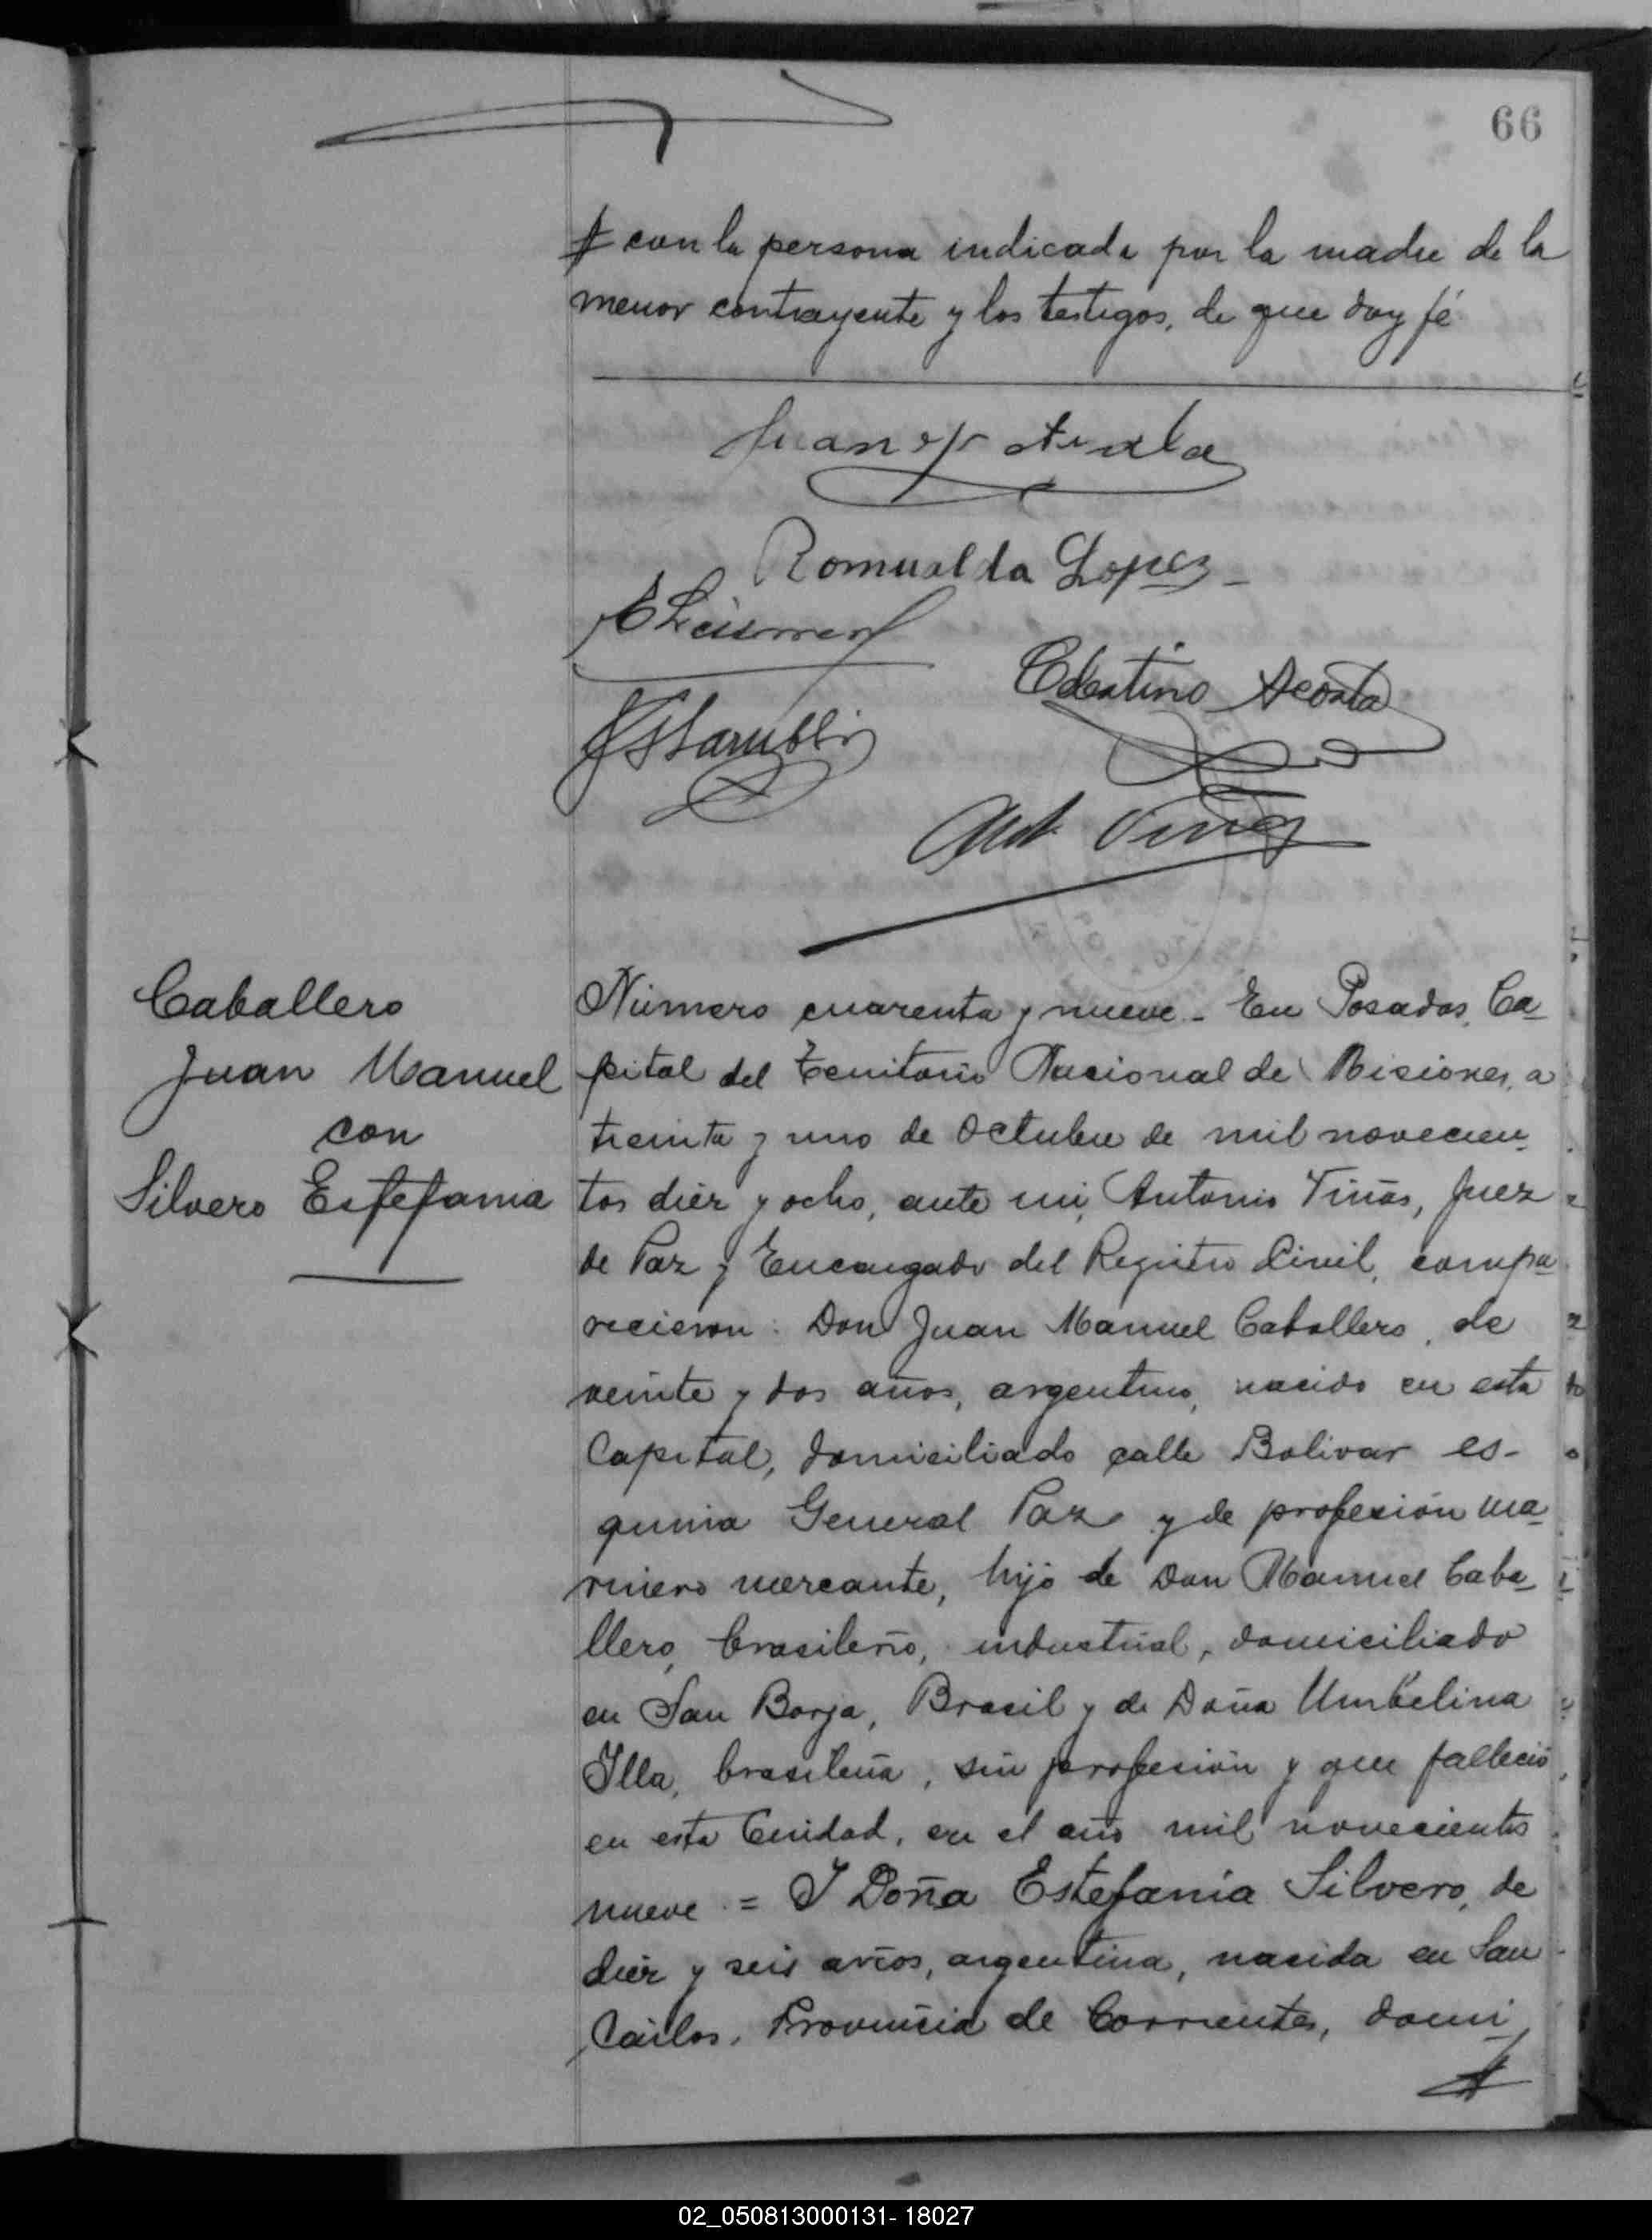 66
con la persona indicada por la madre de la
menor contrayente y los testigos, de que doy fé
Juan
Romualda Lopez
Celestino Acosta
Ant Viñas
Caballero
Juan Manuel
con
Silvero Estefania
Número cuarenta y nueve - En Posadas, Ca-
pital del Territorio Nacional de Misiones, a
treinta y uno de Octubre de mil novecien-
tos diez y ocho, ante mi, Antonio Viñas, Juez
de Paz y Encargado del Registro Civil, compa-
recieron: Don Juan Manuel Caballero, de
veinte y dos años, argentino, nacido en esta
Capital, domiciliado calle Bolivar es-
quina General Paz y de profesión ma-
rinero mercante, hijo de Don Manuel Caba-
llero, brasileño, industrial, domiciliado
en San Borja, Brasil y de Doña Umbelina
Illa, brasileña, sin profesión y que falleció
en esta Ciudad, en el año mil novecientos
nueve = Y Doña Estefanía Silvero, de
diez y seis años, argentina, nacida en San
Carlos, Provincia de Corrientes, domi
02_050813000131-18027